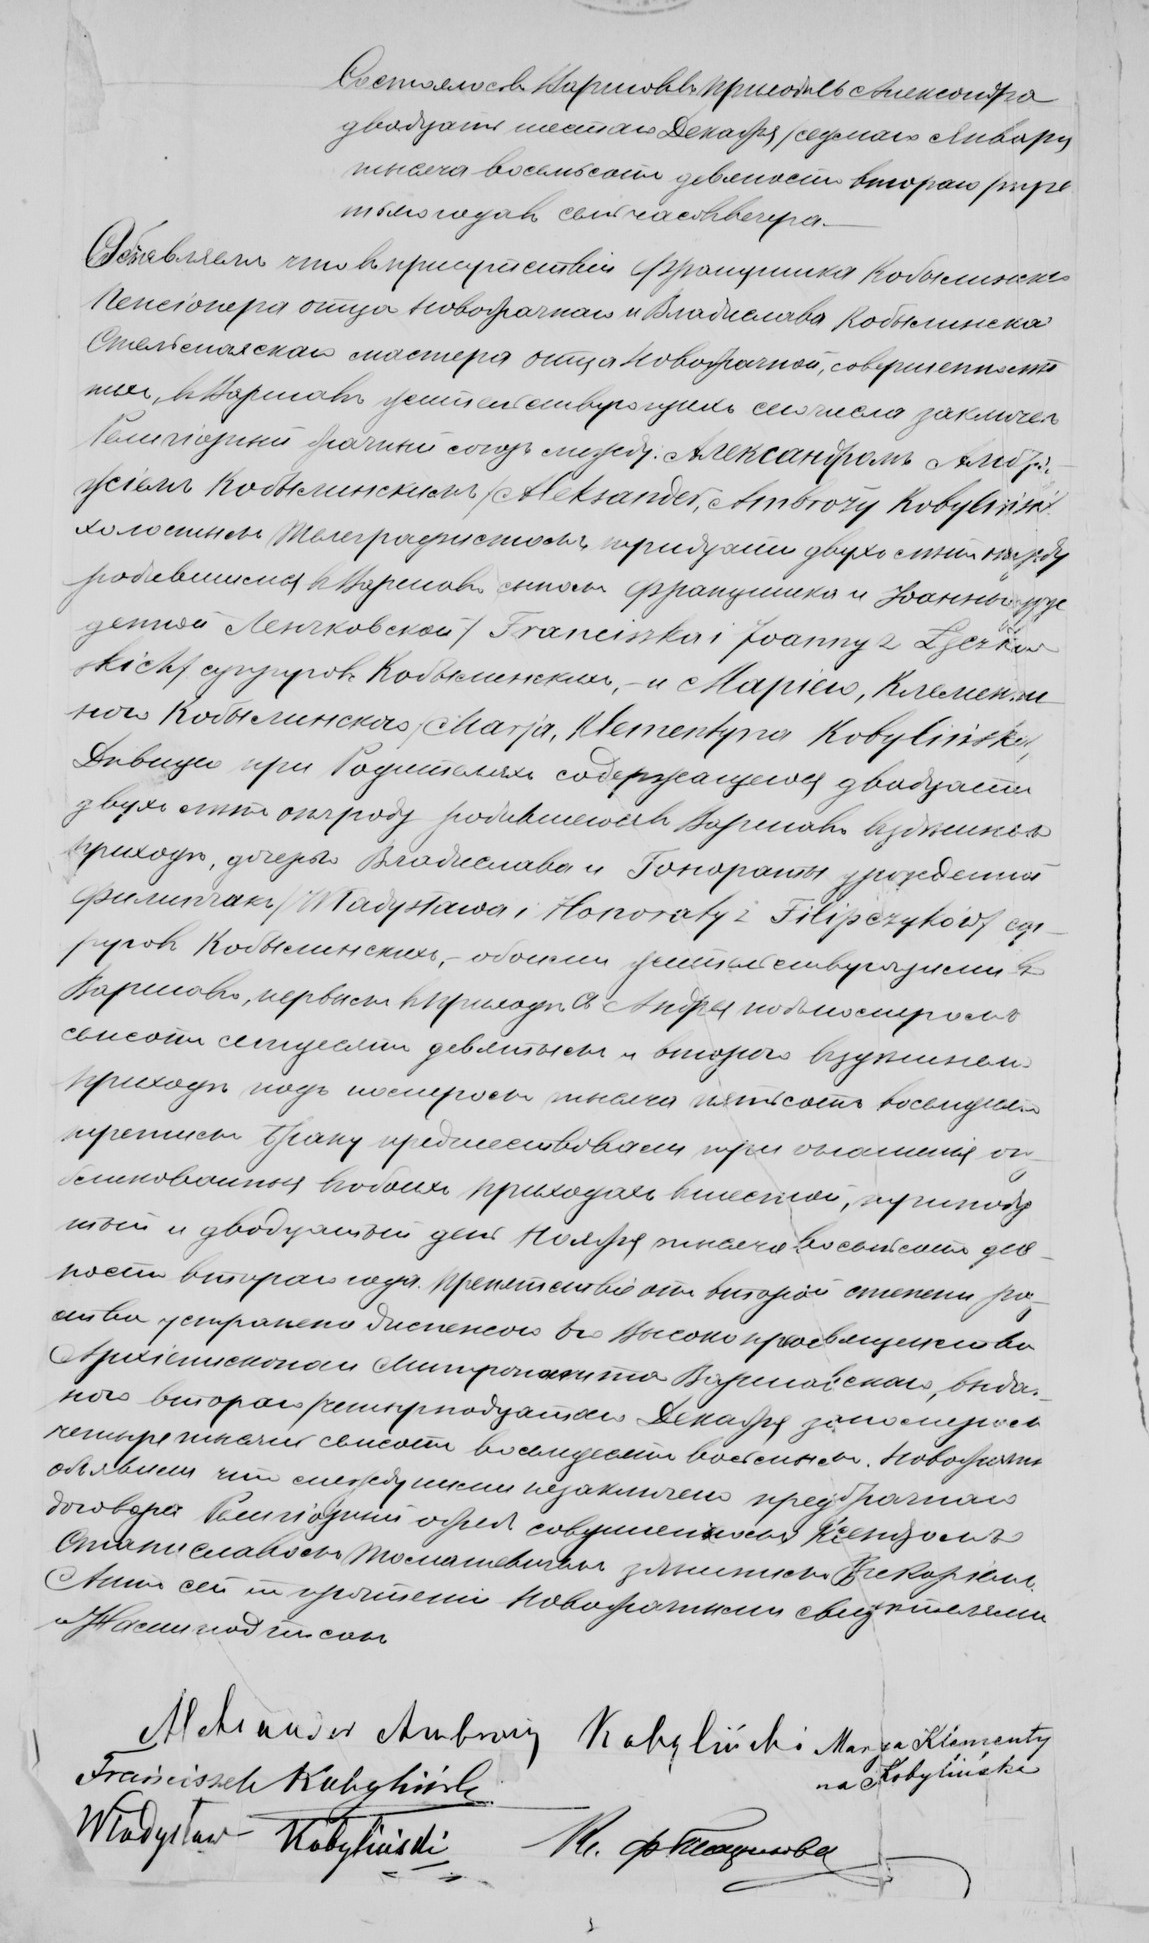 Состоялось въ Варшавѣ въ приходѣ Св Александра
двадцать шестаго Декабря /седьмаго Января
тысяча восемьсотъ девяносто втораго /тре
тьяго года въ семь часовъ вечера.—
Объявляемъ что въ присутствіи Францишка Кобылинскаго
Пенсіонера отца новобрачнаго и Владислава Кобылинска
мастера отца новобрачной, совершеннолѣт
нихъ, въ Варшавѣ жительствующихъ сего числа заключенъ
Религіозный брачный союзъ между: Александромъ Амбро
жіемъ Кобылинскимъ /Aleksander, Ambroży Kobyliński/
холостымъ Телеграфистомъ тридцати двухъ лѣтъ
родившимся въ Варшавѣ сыномъ Францишка и Іоанны урож
денной Ленчковской/ Franciszka i Joanny z Łęczkow
skich/ супруговъ Кобылинскихъ, – и Маріею, Клементи
ною Кобылинскою /Marja, Klementyna Kobylińska/,
Дѣвицею при Родителяхъ содержащеюся двадцати
двухъ лѣтъ отъ роду родившеюся въ Варшавѣ въ здѣшнемъ
приходѣ, дочерью Владислава и Гонораты урожденной
Филипчакъ /Władysława i Honoraty z Filipczyków/ суп–
руговъ Кобылинскихъ, – обоими жительствующими въ
Варшавѣ, первымъ въ приходѣ Св Андрея подъ номеромъ
семьсотъ семдесятъ девятымъ и второю въ здѣшнемъ
приходѣ подъ номеромъ тысяча пятьсотъ восемдесятъ
третьимъ Браку предшествовали три оглашенія оп–
бликованныя въ обоихъ приходахъ въ шестой, тринадца
тый и двадцатый день Ноября тысяча восемьсотъ девя–
носто втораго года. Препятствіе отъ второй степени род–
ства устранено диспенсою Его Высокопреосвященства
Архіепископа Митрополита Варшавскаго, выдан–
ною втораго /четырнадцатаго Декабря за номеромъ
четыре тысячи семьсотъ восемдесятъ восьмымъ. Новобрачные
объявили что между ними не заключено предбрачнаго
договора Религіозный обрядъ совершенъ Ксендзомъ
Станиславомъ Томашевичемъ здѣшнимъ Викаріемъ.
Актъ сей по прочтеніи Новобрачными свидѣтелями
и Нами подписанъ
Aleksander Ambroży Kobyliński Marya Klementy
na Kobylińska
Franciszek Kobyliński
Władysław Kobyliński